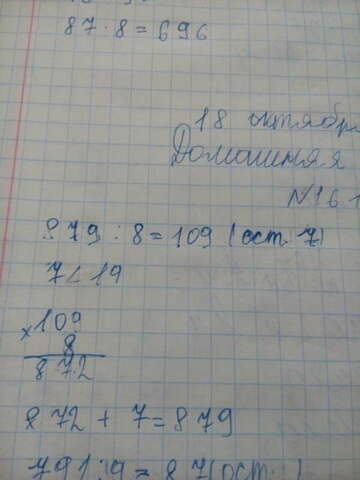 87·8=696
18 октябр
Домашняя
№161
879:8=109 (ост. 7)
7<19
×109
8
872
872+7=879
791:9=87(ост.